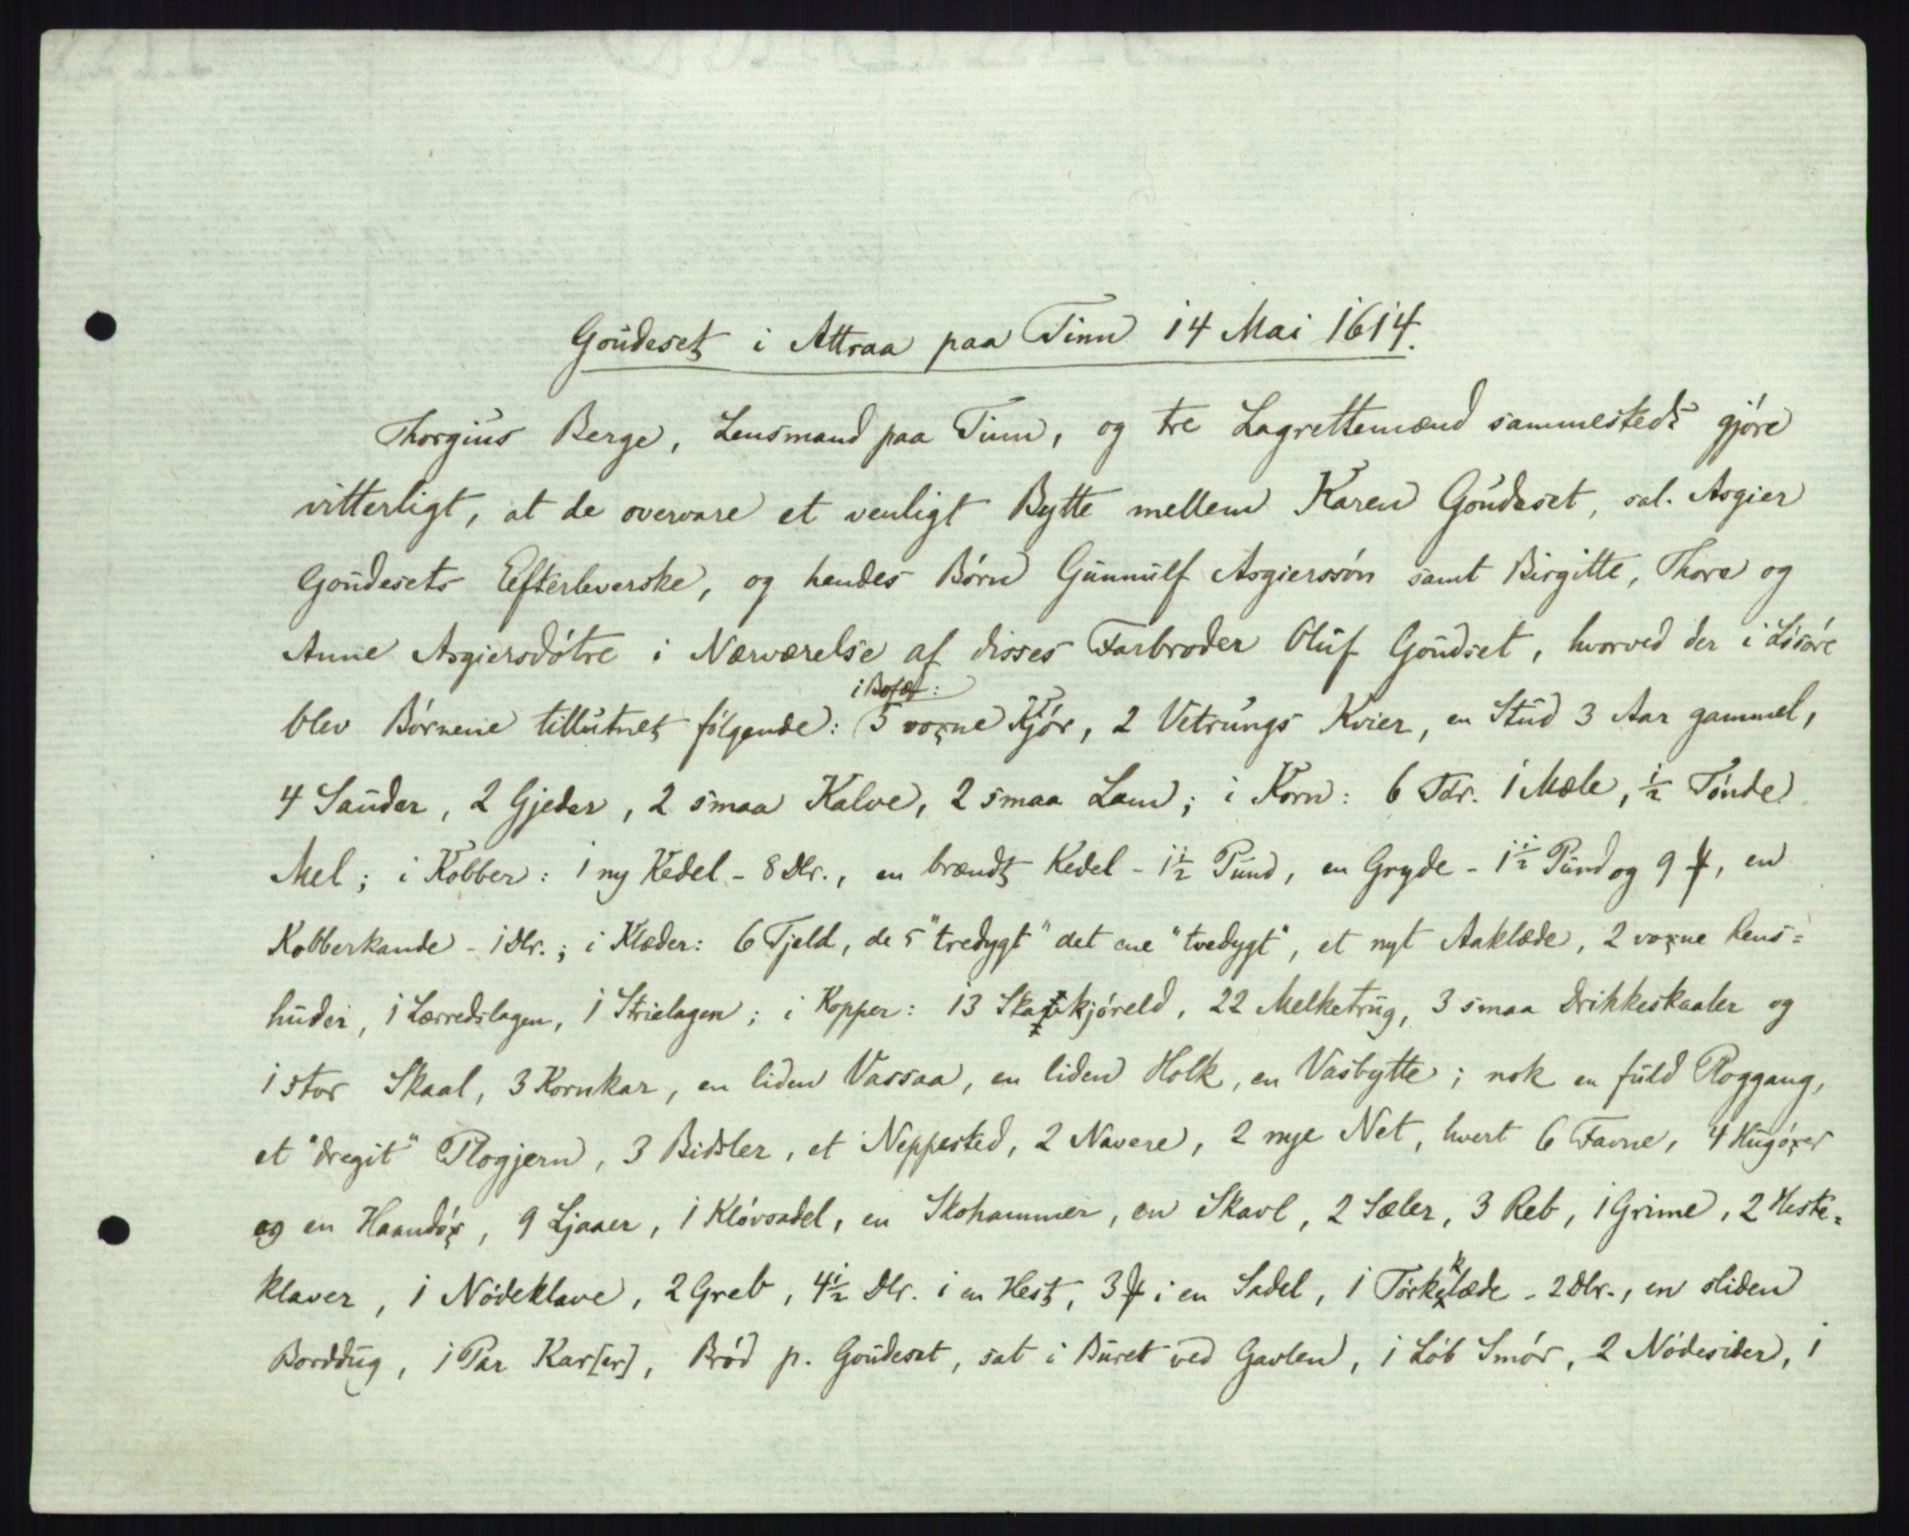 Goudeset i Attraa paa Tinn 14 Mai 1614.
Thorgius Berge, Lensmand paa Tinn, og tre Lagrettemænd sammesteds gjøre
vitterligt, at de overvare et venligt Bytte mellem Karen Goudeset, sal. Asgier
Goudesets Efterleverske, og hendes Børn Gunnulf Asgierssøn samt Birgitte, Thore og
Anne Asgiersdøtre i Nærværelse af disses Farbroder Oluf Goudset, hvorved der i Løsøre
i Bofæ:
blev Børnene tillutnet følgende: 5 voxne Kjør, 2 Vetrungs Kvier, en Stud 3 Aar gammel,
4 Sauder, 2 Gjeder, 2 smaa Kalve, 2 smaa Lam; i Korn: 6 Tdr. 1 Mæle, ½ Tønde
Mel; i Kobber: 1 ny Kedel - 8 Dlr., en brændt Kedel - 1½ Pund, en Gryde - 1½ Pund og 9 ℔, en
Kobberkande - 1 Dlr.; i Klæder: 6 Fjeld, de 5 "tredygt" det ene "tvedygt", et nyt Aaklæde, 2 voxne Rens=
huder, 1 Lærredslagen, 1 Strielagen; i Kopper: 13 Skabkjøreld, 22 Melketrug, 3 smaa Drikkeskaaler og
1 stor Skaal, 3 Kornkar, en liden Vassaa, en liden Holk, en Vasbytte; nok en fuld Ploggang,
et "dregit" Plogjern, 3 Bidsler, et Neppested, 2 Navere, 2 nye Net, hvert 6 Favne, 4 Hugøxer
og en Haandøx, 9 Ljaaer, 1 Kløvsadel, en Skohammer, en Skavl, 2 Sæler, 3 Reb, 1 Grime, 2 Heste=
klaver, 1 Nødeklave, 2 Greb, 4½ Dlr. i en Hest, 3 ℔ i en Sadel, 1 Tørkeklæde - 2 Dlr., en sliden
Borddug, 1 Par Kar[er], Brød p. Goudeset, sat i Buret ved Gavlen, 1 Løb Smør, 2 Nødesider, 1